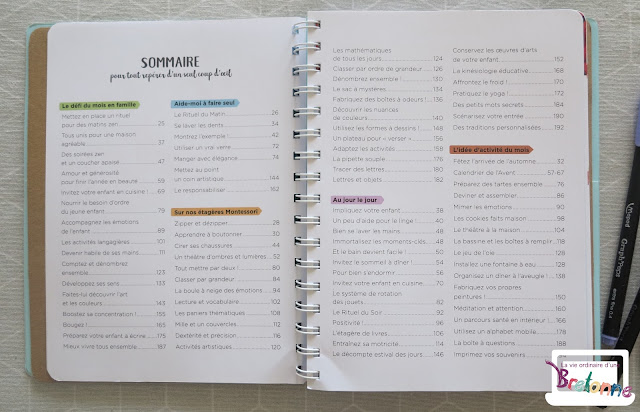 SOMMAIRE
pour tout repérer d'un seul coup d'œil
Le défi du mois en famille
Mettez en place un rituel
pour des matins zen 25
Tous unis pour une maison
agréable 37
Des soirées zen
et un coucher apaisé 47
Amour et générosité
pour finir l'année en beauté 59
Invitez votre enfant en cuisine ! 69
Nourrir le besoin d'ordre
du jeune enfant 79
Accompagnez les émotions
de l'enfant 89
Les activités langagières 101
Devenir habile de ses mains 111
Comptez et dénombrez
ensemble 123
Développez ses sens 133
Faites-lui découvrir l'art
et les couleurs 143
Boostez sa concentration ! 155
Bougez ! 165
Préparez votre enfant à écrire 175
Mieux vivre tous ensemble 187
Aide-moi à faire seul
Le Rituel du Matin 26
Se laver les dents 34
Montrez l'exemple ! 42
Utiliser un vrai verre 72
Manger avec élégance 74
Mettez au point
un coin artistique 144
Le responsabiliser 162
Sur nos étagères Montessori
Zipper et dézipper 28
Apprendre à boutonner 30
Cirer ses chaussures 44
Un théâtre d'ombres et lumières 52
Tout mettre par deux 80
Classer par grandeur 84
La boule à neige des émotions 94
Lecture et vocabulaire 102
Les paniers thématiques 108
Mille et un couvercles 112
Dextérité et précision 116
Activités artistiques 120
Les mathématiques
de tous les jours 124
Classer par ordre de grandeur 126
Dénombrez ensemble ! 130
Le sac à mystères 134
Fabriquez des boîtes à odeurs ! 136
Découvrir les nuances
de couleurs 140
Utilisez les formes à dessins ! 148
Un plateau pour « verser » 156
Adaptez les activités 158
La pipette souple 176
Tracer des lettres 180
Lettres et objets 182
Au jour le jour
Impliquez votre enfant 38
Un peu d'aide pour le linge ! 40
Bien se laver les mains 48
Immortalisez les moments-clés 48
Et le bain devient facile ! 50
Invitez le sommeil à dîner ! 54
Pour bien s'endormir 56
Invitez votre enfant en cuisine 70
Le système de rotation
des jouets 82
Le Rituel du Soir 90
Positivité ! 96
L'étagère de livres 106
Entraînez sa motricité 114
Le décompte estival des jours 146
Conservez les œuvres d'arts
de votre enfant 152
La kinésiologie éducative 168
Affrontez le froid ! 170
Pratiquez le yoga ! 172
Des petits mots secrets 184
Scénarisez votre entrée 190
Des traditions personnalisées 192
L'idée d'activité du mois
Fêtez l'arrivée de l'automne 32
Calendrier de l'Avent 57-67
Préparez des tartes ensemble 76
Deviner et assembler 86
Mimer les émotions 90
Les cookies faits maison 98
Le théâtre à la maison 104
La bassine et les boîtes à remplir 118
Le jeu de l'oie 128
Installez une fontaine à eau 132
Organisez un dîner à l'aveugle ! 138
Fabriquez vos propres
peintures ! 150
Méditation et attention 160
Un parcours santé en intérieur 166
Utilisez un alphabet mobile 178
La boîte à questions 188
Imprimez vos souvenirs
La vie ordinaire d'un
Bretonne